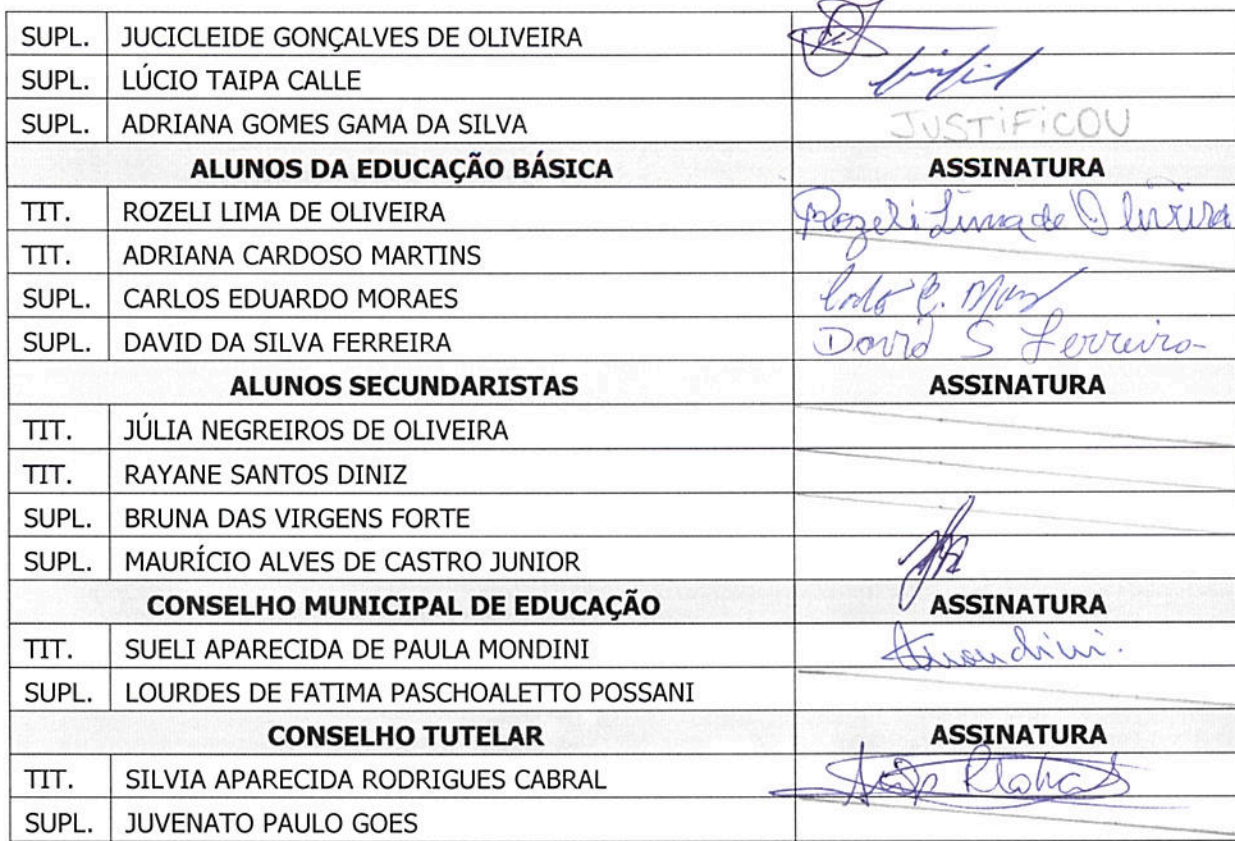 SUPL. JUCICLEIDE GONÇALVES DE OLIVEIRA
SUPL. LÚCIO TAIPA CALLE
SUPL. ADRIANA GOMES GAMA DA SILVA JUSTIFICOU
ALUNOS DA EDUCAÇÃO BÁSICA ASSINATURA
TIT. ROZELI LIMA DE OLIVEIRA Rozeli Lima de Oliveira
TIT. ADRIANA CARDOSO MARTINS
SUPL. CARLOS EDUARDO MORAES
SUPL. DAVID DA SILVA FERREIRA David S Ferreira
ALUNOS SECUNDARISTAS ASSINATURA
TIT. JÚLIA NEGREIROS DE OLIVEIRA
TIT. RAYANE SANTOS DINIZ
SUPL. BRUNA DAS VIRGENS FORTE
SUPL. MAURÍCIO ALVES DE CASTRO JUNIOR
CONSELHO MUNICIPAL DE EDUCAÇÃO ASSINATURA
TIT. SUELI APARECIDA DE PAULA MONDINI
SUPL. LOURDES DE FATIMA PASCHOALETTO POSSANI
CONSELHO TUTELAR ASSINATURA
TIT. SILVIA APARECIDA RODRIGUES CABRAL
SUPL. JUVENATO PAULO GOES